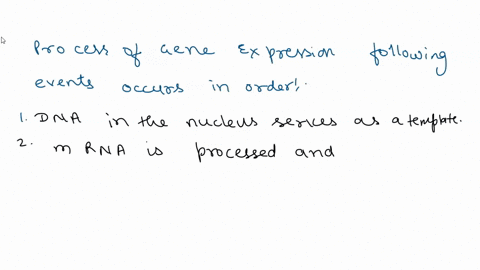 Process of Gene Expression following
events occurs in order!.
1. DNA in the nucleus serves as a template.
2. mRNA is processed and